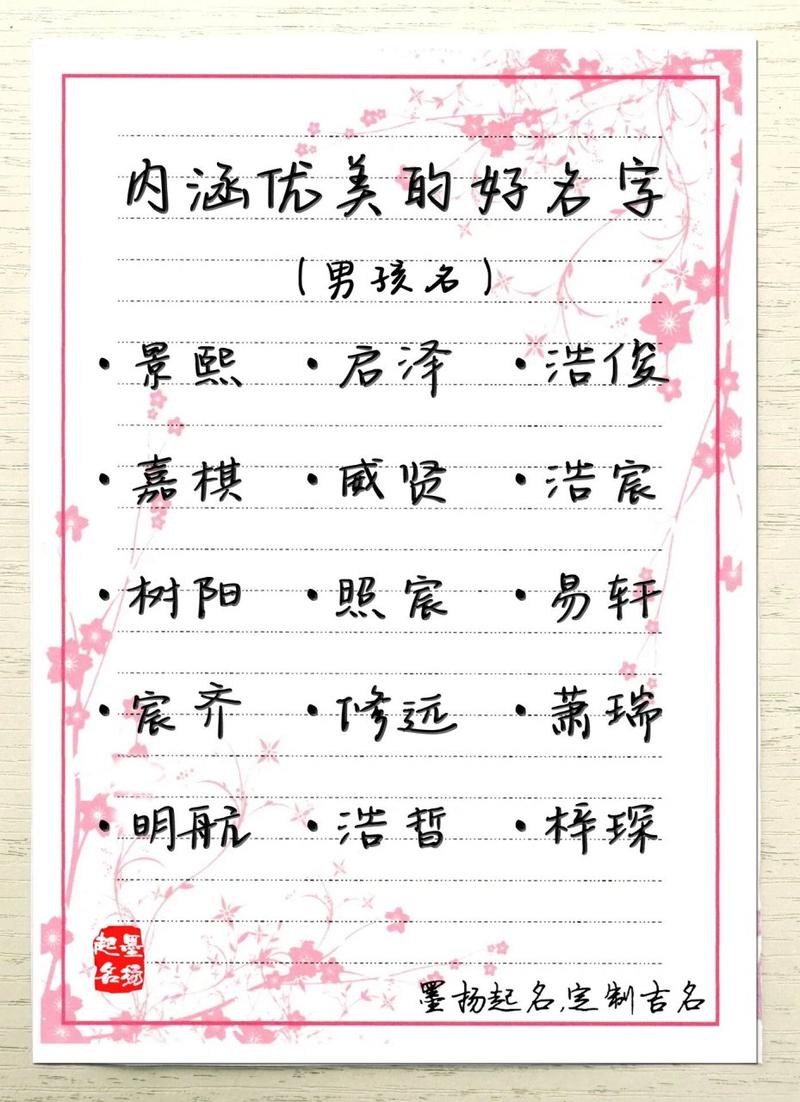 内涵优美的好名字
(男孩名)
•景熙 •启泽 •浩俊
•嘉棋 •威贤 •浩宸
•树阳 •照宸 •易轩
•宸齐 •修远 •萧瑞
•明航 •浩哲 •梓琛
墨扬起名
墨扬起名,定制吉名